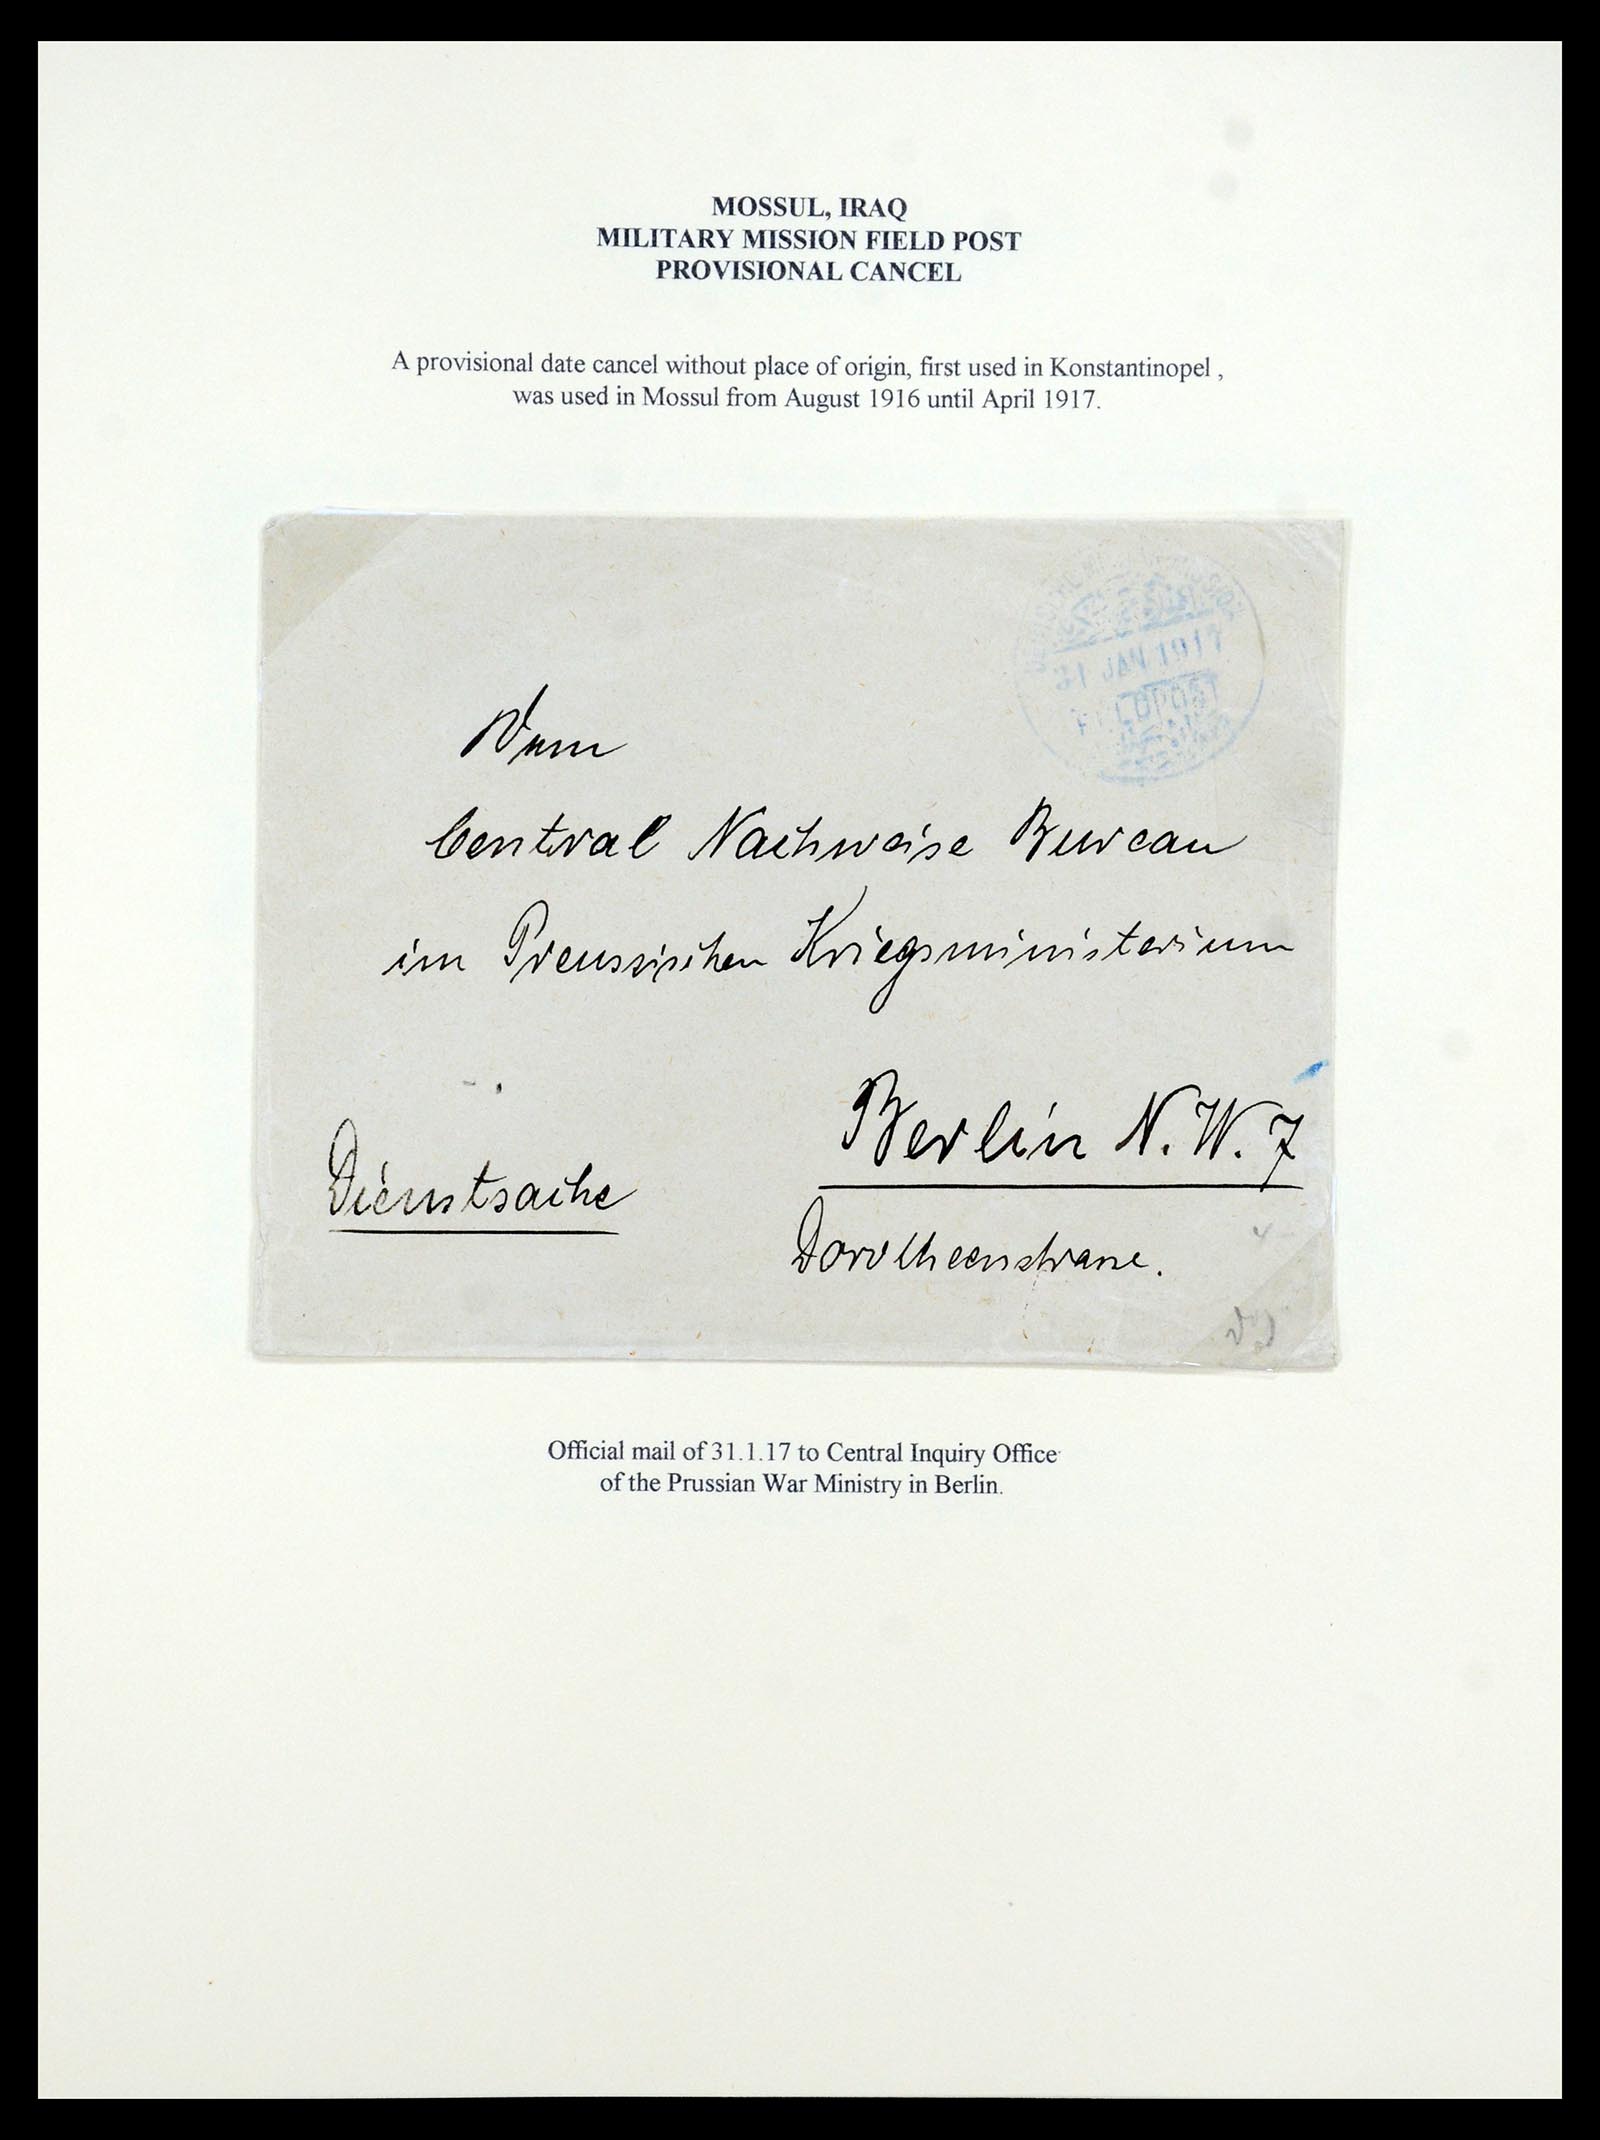 MOSSUL, IRAQ
MILITARY MISSION FIELD POST
PROVISIONAL CANCEL
A provisional date cancel without place of origin, first used in Konstantinopel ,
was used in Mossul from August 1916 until April 1917.
31 JAN 1917
FELDPOST
Central Nachweise Bureau
im Preussischen Kriegsministerium
Berlin N.W. 7
Dienstsache
Dorotheenstrasse.
Official mail of 31.1.17 to Central Inquiry Office
of the Prussian War Ministry in Berlin.